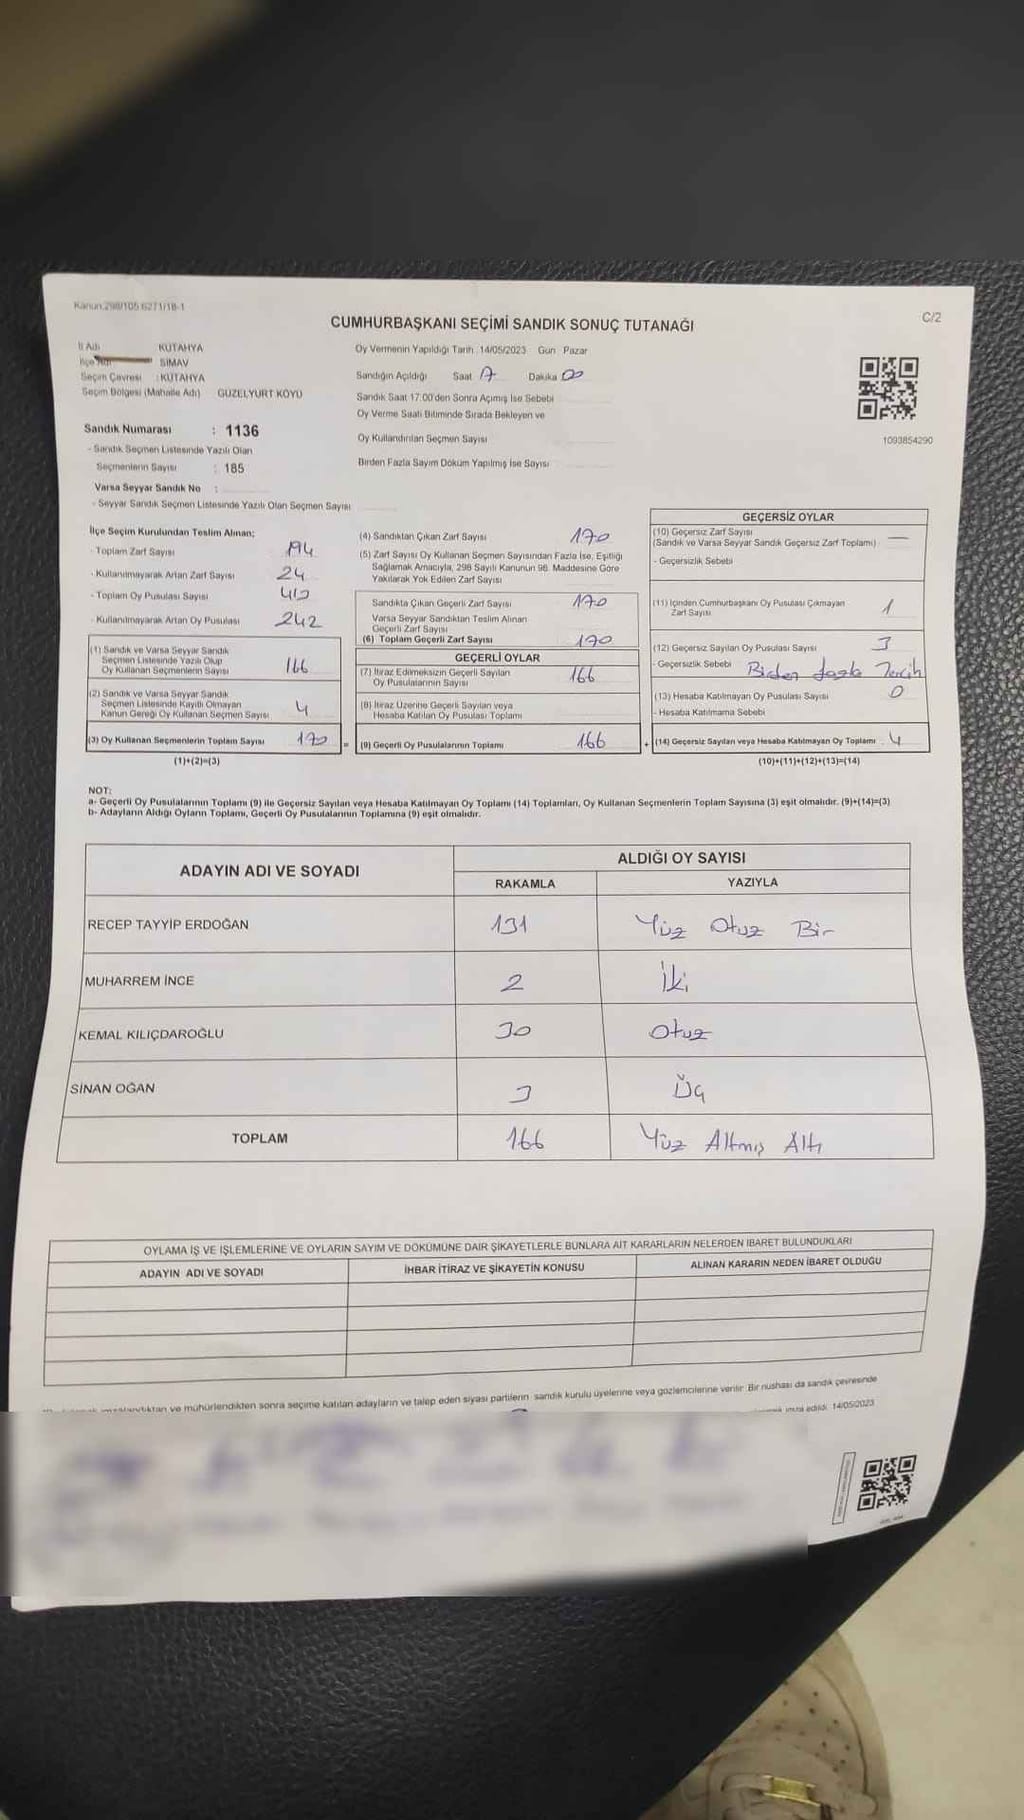 Kanun:298/105 6271/18-1
CUMHURBAŞKANI SEÇİMİ SANDIK SONUÇ TUTANAĞI
C/2
İl Adı : KÜTAHYA
İlçe Adı : SİMAV
Seçim Çevresi : KÜTAHYA
Seçim Bölgesi (Mahalle Adı) GÜZELYURT KÖYÜ
Sandık Numarası : 1136
- Sandık Seçmen Listesinde Yazılı Olan
Seçmenlerin Sayısı : 185
Varsa Seyyar Sandık No :
- Seyyar Sandık Seçmen Listesinde Yazılı Olan Seçmen Sayısı
Oy Vermenin Yapıldığı Tarih :14/05/2023 Gün Pazar
Sandığın Açıldığı Saat Dakika 00
Sandık Saat 17.00'den Sonra Açılmış İse Sebebi
Oy Verme Saati Bitiminde Sırada Bekleyen ve
Oy Kullandırılan Seçmen Sayısı
Birden Fazla Sayım Döküm Yapılmış İse Sayısı
1093854290
İlçe Seçim Kurulundan Teslim Alınan;
- Toplam Zarf Sayısı 194
- Kullanılmayarak Artan Zarf Sayısı 24
- Toplam Oy Pusulası Sayısı
- Kullanılmayarak Artan Oy Pusulası 242
(1) Sandık ve Varsa Seyyar Sandık
Seçmen Listesinde Yazılı Olup
Oy Kullanan Seçmenlerin Sayısı 166
(2) Sandık ve Varsa Seyyar Sandık
Seçmen Listesinde Kayıtlı Olmayan
Kanun Gereği Oy Kullanan Seçmen Sayısı 4
(3) Oy Kullanan Seçmenlerin Toplam Sayısı 170
(1)+(2)=(3)
(4) Sandıktan Çıkan Zarf Sayısı 170
(5) Zarf Sayısı Oy Kullanan Seçmen Sayısından Fazla İse, Eşitliği
Sağlamak Amacıyla, 298 Sayılı Kanunun 98. Maddesine Göre
Yakılarak Yok Edilen Zarf Sayısı
Sandıkta Çıkan Geçerli Zarf Sayısı 170
Varsa Seyyar Sandıktan Teslim Alınan
Geçerli Zarf Sayısı
(6) Toplam Geçerli Zarf Sayısı 170
GEÇERLİ OYLAR
(7) İtiraz Edilmeksizin Geçerli Sayılan
Oy Pusulalarının Sayısı 166
(8) İtiraz Üzerine Geçerli Sayılan veya
Hesaba Katılan Oy Pusulası Toplamı
= (9) Geçerli Oy Pusulalarının Toplamı 166
GEÇERSİZ OYLAR
(10) Geçersiz Zarf Sayısı —
(Sandık ve Varsa Seyyar Sandık Geçersiz Zarf Toplamı)
- Geçersizlik Sebebi
(11) İçinden Cumhurbaşkanı Oy Pusulası Çıkmayan
Zarf Sayısı 1
(12) Geçersiz Sayılan Oy Pusulası Sayısı 3
- Geçersizlik Sebebi Birden fazla Tercih
(13) Hesaba Katılmayan Oy Pusulası Sayısı 0
- Hesaba Katılmama Sebebi
+ (14) Geçersiz Sayılan veya Hesaba Katılmayan Oy Toplamı 4
(10)+(11)+(12)+(13)=(14)
NOT:
a- Geçerli Oy Pusulalarının Toplamı (9) ile Geçersiz Sayılan veya Hesaba Katılmayan Oy Toplamı (14) Toplamları, Oy Kullanan Seçmenlerin Toplam Sayısına (3) eşit olmalıdır. (9)+(14)=(3)
b- Adayların Aldığı Oyların Toplamı, Geçerli Oy Pusulalarının Toplamına (9) eşit olmalıdır.
ADAYIN ADI VE SOYADI
ALDIĞI OY SAYISI
RAKAMLA YAZIYLA
RECEP TAYYİP ERDOĞAN 131 Yüz Otuz Bir
MUHARREM İNCE 2 İki
KEMAL KILIÇDAROĞLU 30 Otuz
SİNAN OĞAN 3 Üç
TOPLAM 166 Yüz Altmış Altı
OYLAMA İŞ VE İŞLEMLERİNE VE OYLARIN SAYIM VE DÖKÜMÜNE DAİR ŞİKAYETLERLE BUNLARA AİT KARARLARIN NELERDEN İBARET BULUNDUKLARI
ADAYIN ADI VE SOYADI İHBAR İTİRAZ VE ŞİKAYETİN KONUSU ALINAN KARARIN NEDEN İBARET OLDUĞU
ve mühürlendikten sonra seçime katılan adayların ve talep eden siyasi partilerin sandık kurulu üyelerine veya gözlemcilerine verilir. Bir nüshası da sandık çevresinde
imza edildi. 14/05/2023